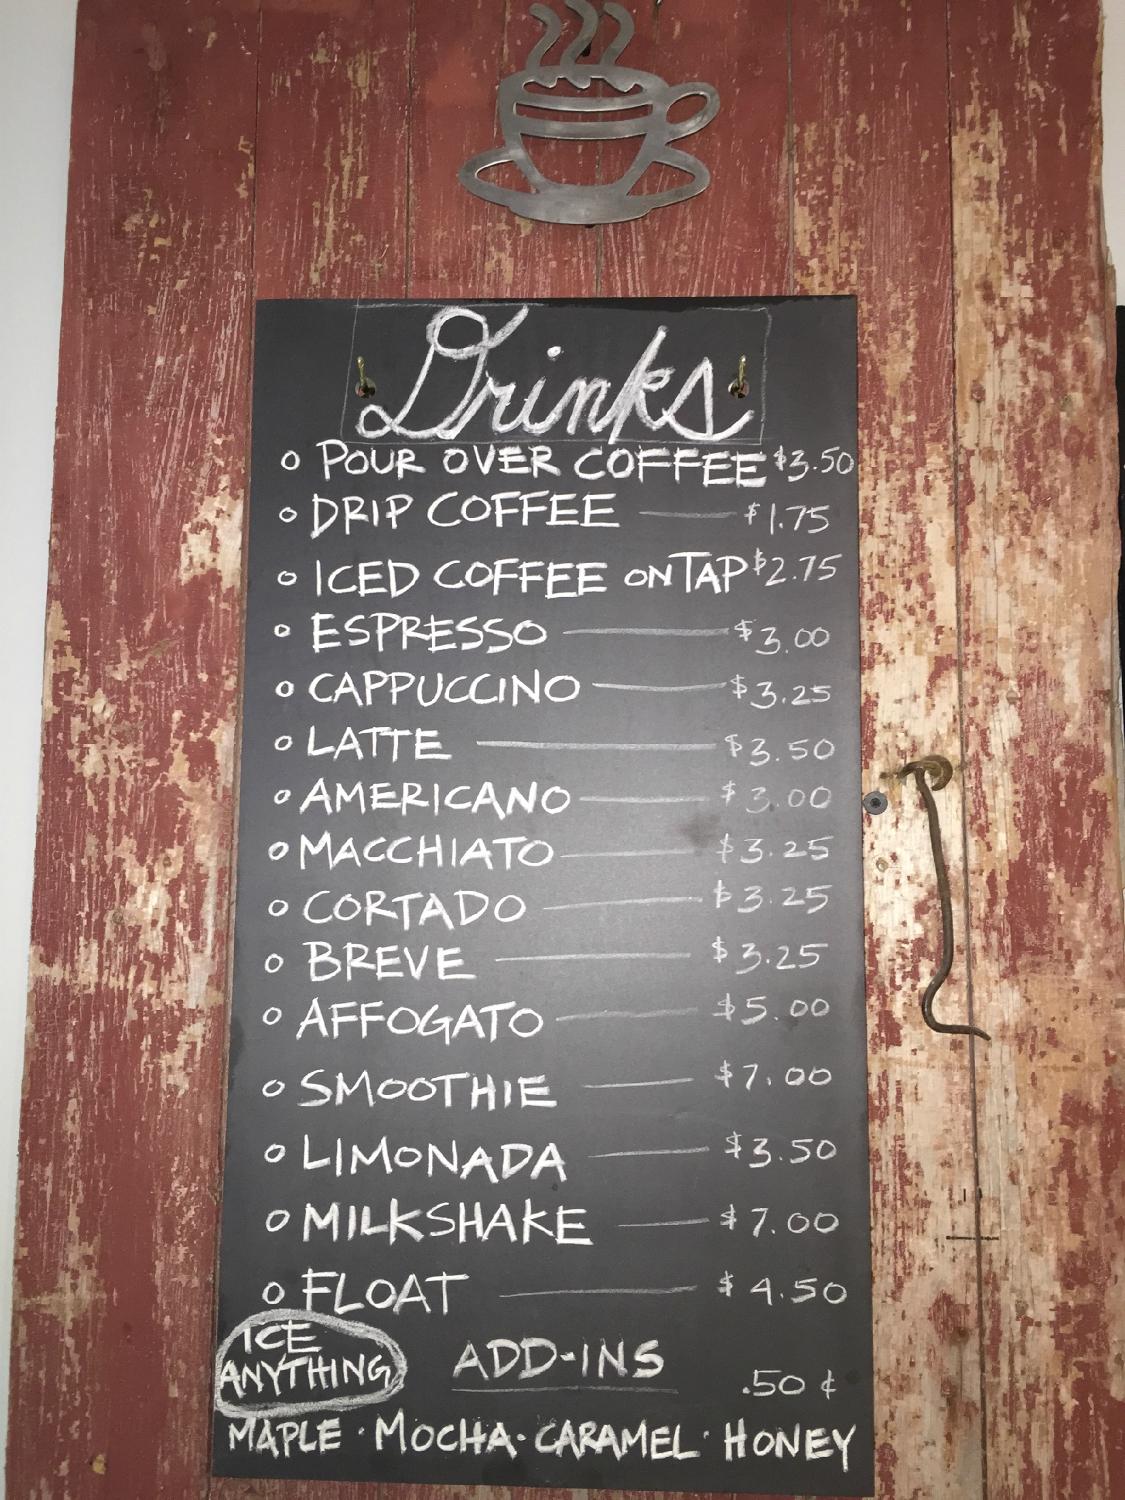 Drinks
POUR OVER COFFEE $3.50
DRIP COFFEE $1.75
ICED COFFEE ON TAP $2.75
ESPRESSO $3.00
CAPPUCCINO $3.25
LATTE $3.50
AMERICANO $3.00
MACCHIATO $3.25
CORTADO $3.25
BREVE $3.25
AFFOGATO $5.00
SMOOTHIE $7.00
LIMONADA $3.50
MILKSHAKE $7.00
FLOAT $4.50
ICE
ANYTHING
ADD-INS .50 ¢
MAPLE · MOCHA · CARAMEL · HONEY